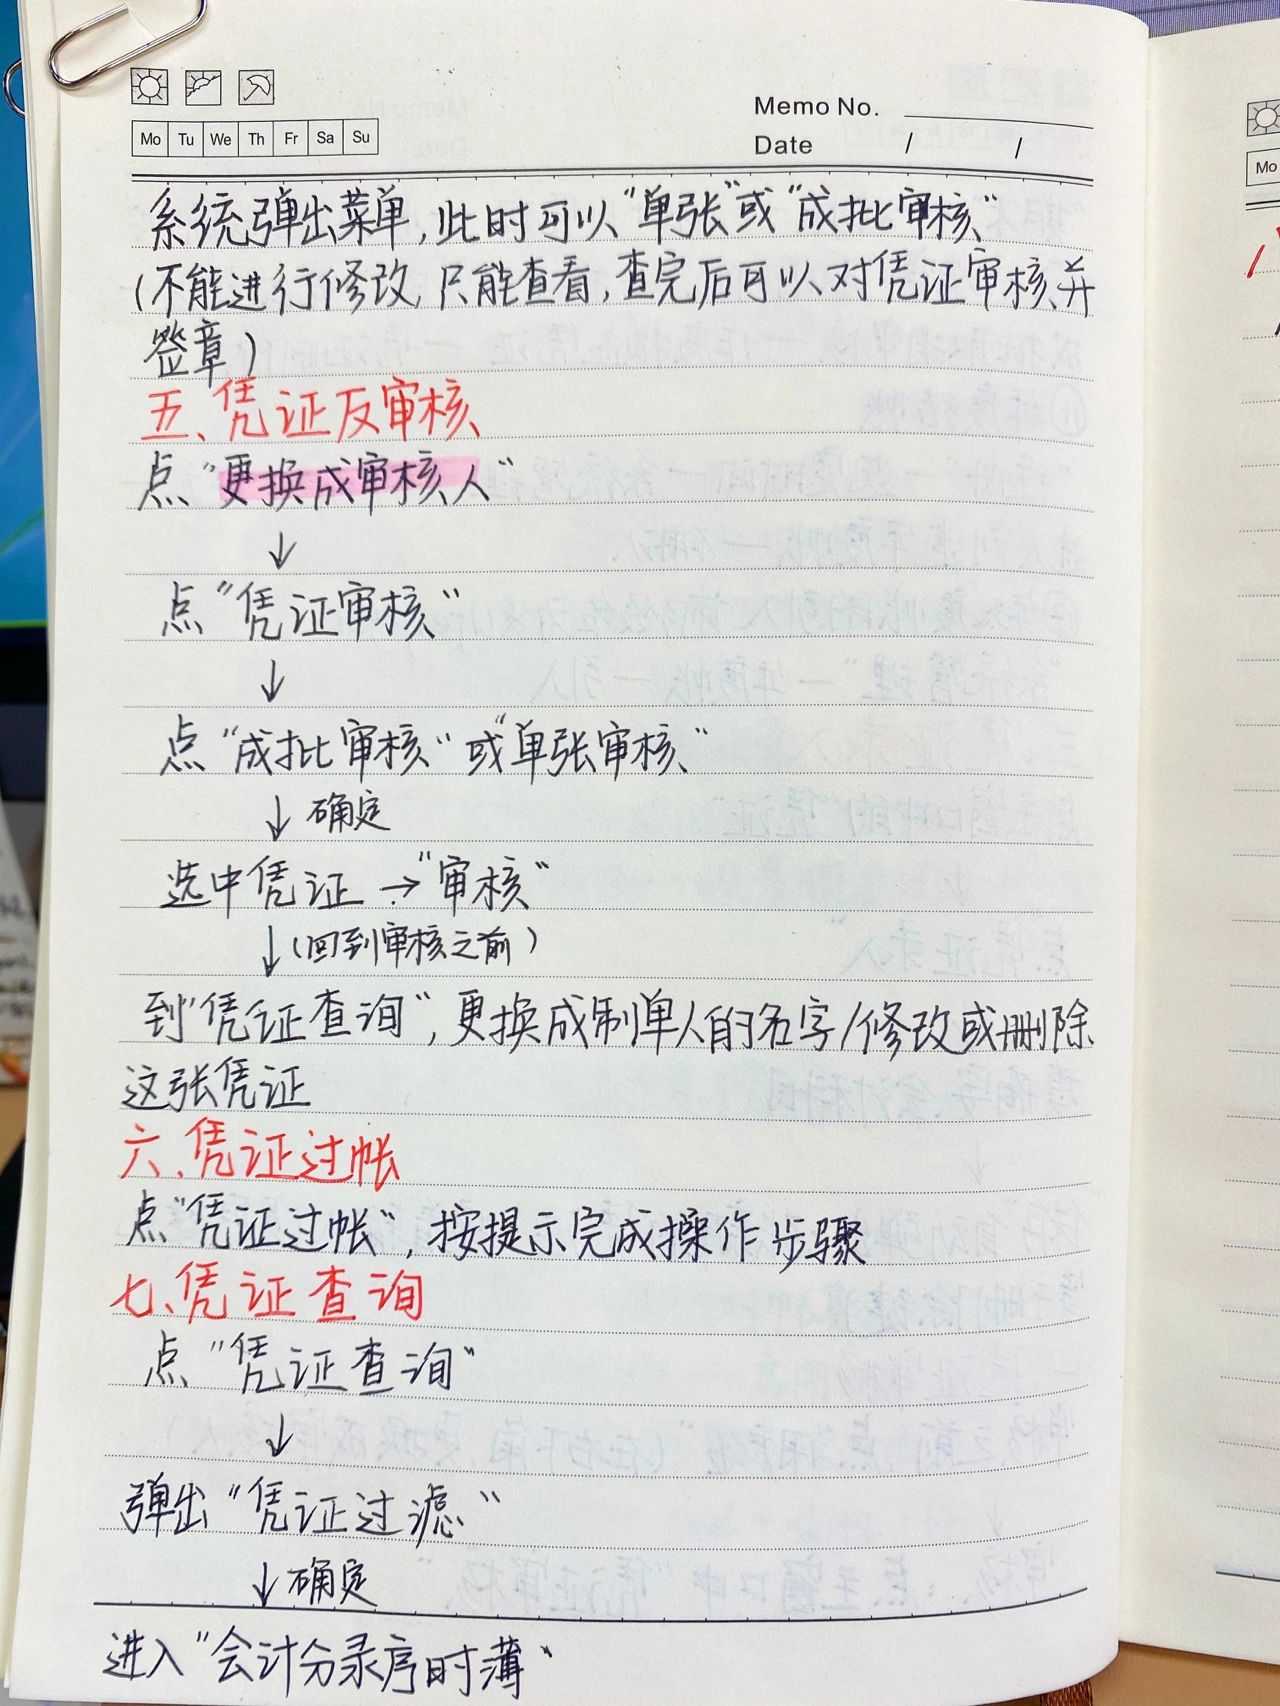 Memo No.
Mo Tu We Th Fr Sa Su
Date / /
系统弹出菜单,此时可以"单张"或"成批审核"
(不能进行修改,只能查看,查完后可以对凭证审核并
签章)
五、凭证反审核
点"更换成审核人"
↓
点"凭证审核"
↓
点"成批审核"或"单张审核"
↓确定
选中凭证→"审核"
↓(回到审核之前)
到"凭证查询",更换成制单人的名字/修改或删除
这张凭证
六、凭证过帐
点"凭证过帐",按提示完成操作步骤
七、凭证查询
点"凭证查询"
↓
弹出"凭证过滤"
↓确定
进入"会计分录序时薄"
Mo